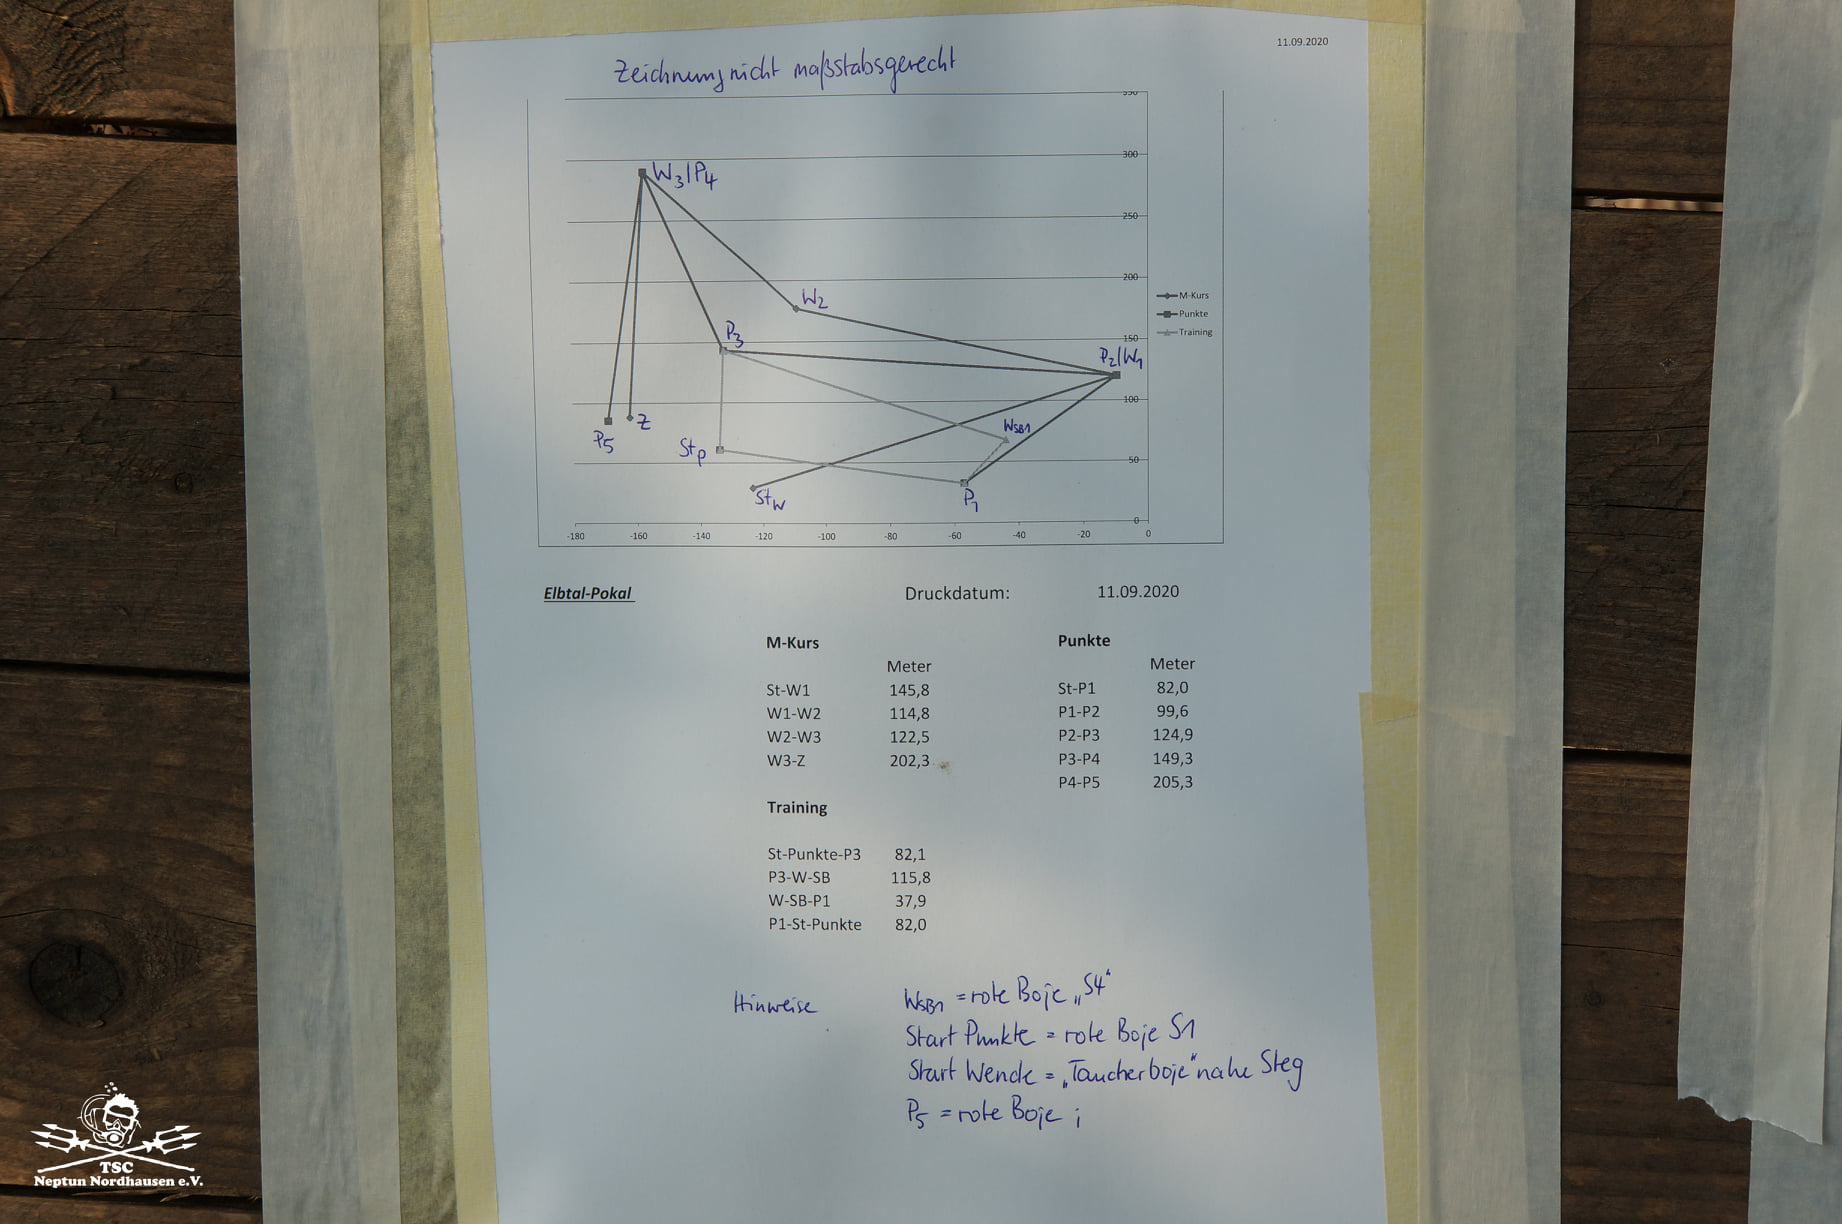 11.09.2020
Zeichnung nicht maßstabsgerecht
350
300
250
200
150
100
50
0
-180 -160 -140 -120 -100 -80 -60 -40 -20 0
W3/P4
W2
P3
P2/W1
WSB1
P5
Z
StP
StW
P1
M-Kurs
Punkte
Training
Elbtal-Pokal Druckdatum: 11.09.2020
M-Kurs Punkte
Meter Meter
St-W1 145,8 St-P1 82,0
W1-W2 114,8 P1-P2 99,6
W2-W3 122,5 P2-P3 124,9
W3-Z 202,3 P3-P4 149,3
P4-P5 205,3
Training
St-Punkte-P3 82,1
P3-W-SB 115,8
W-SB-P1 37,9
P1-St-Punkte 82,0
Hinweise WSB1 = rote Boje „S4"
Start Punkte = rote Boje S1
Start Wende = „Taucherboje" nahe Steg
P5 = rote Boje i
TSC
Neptun Nordhausen e.V.